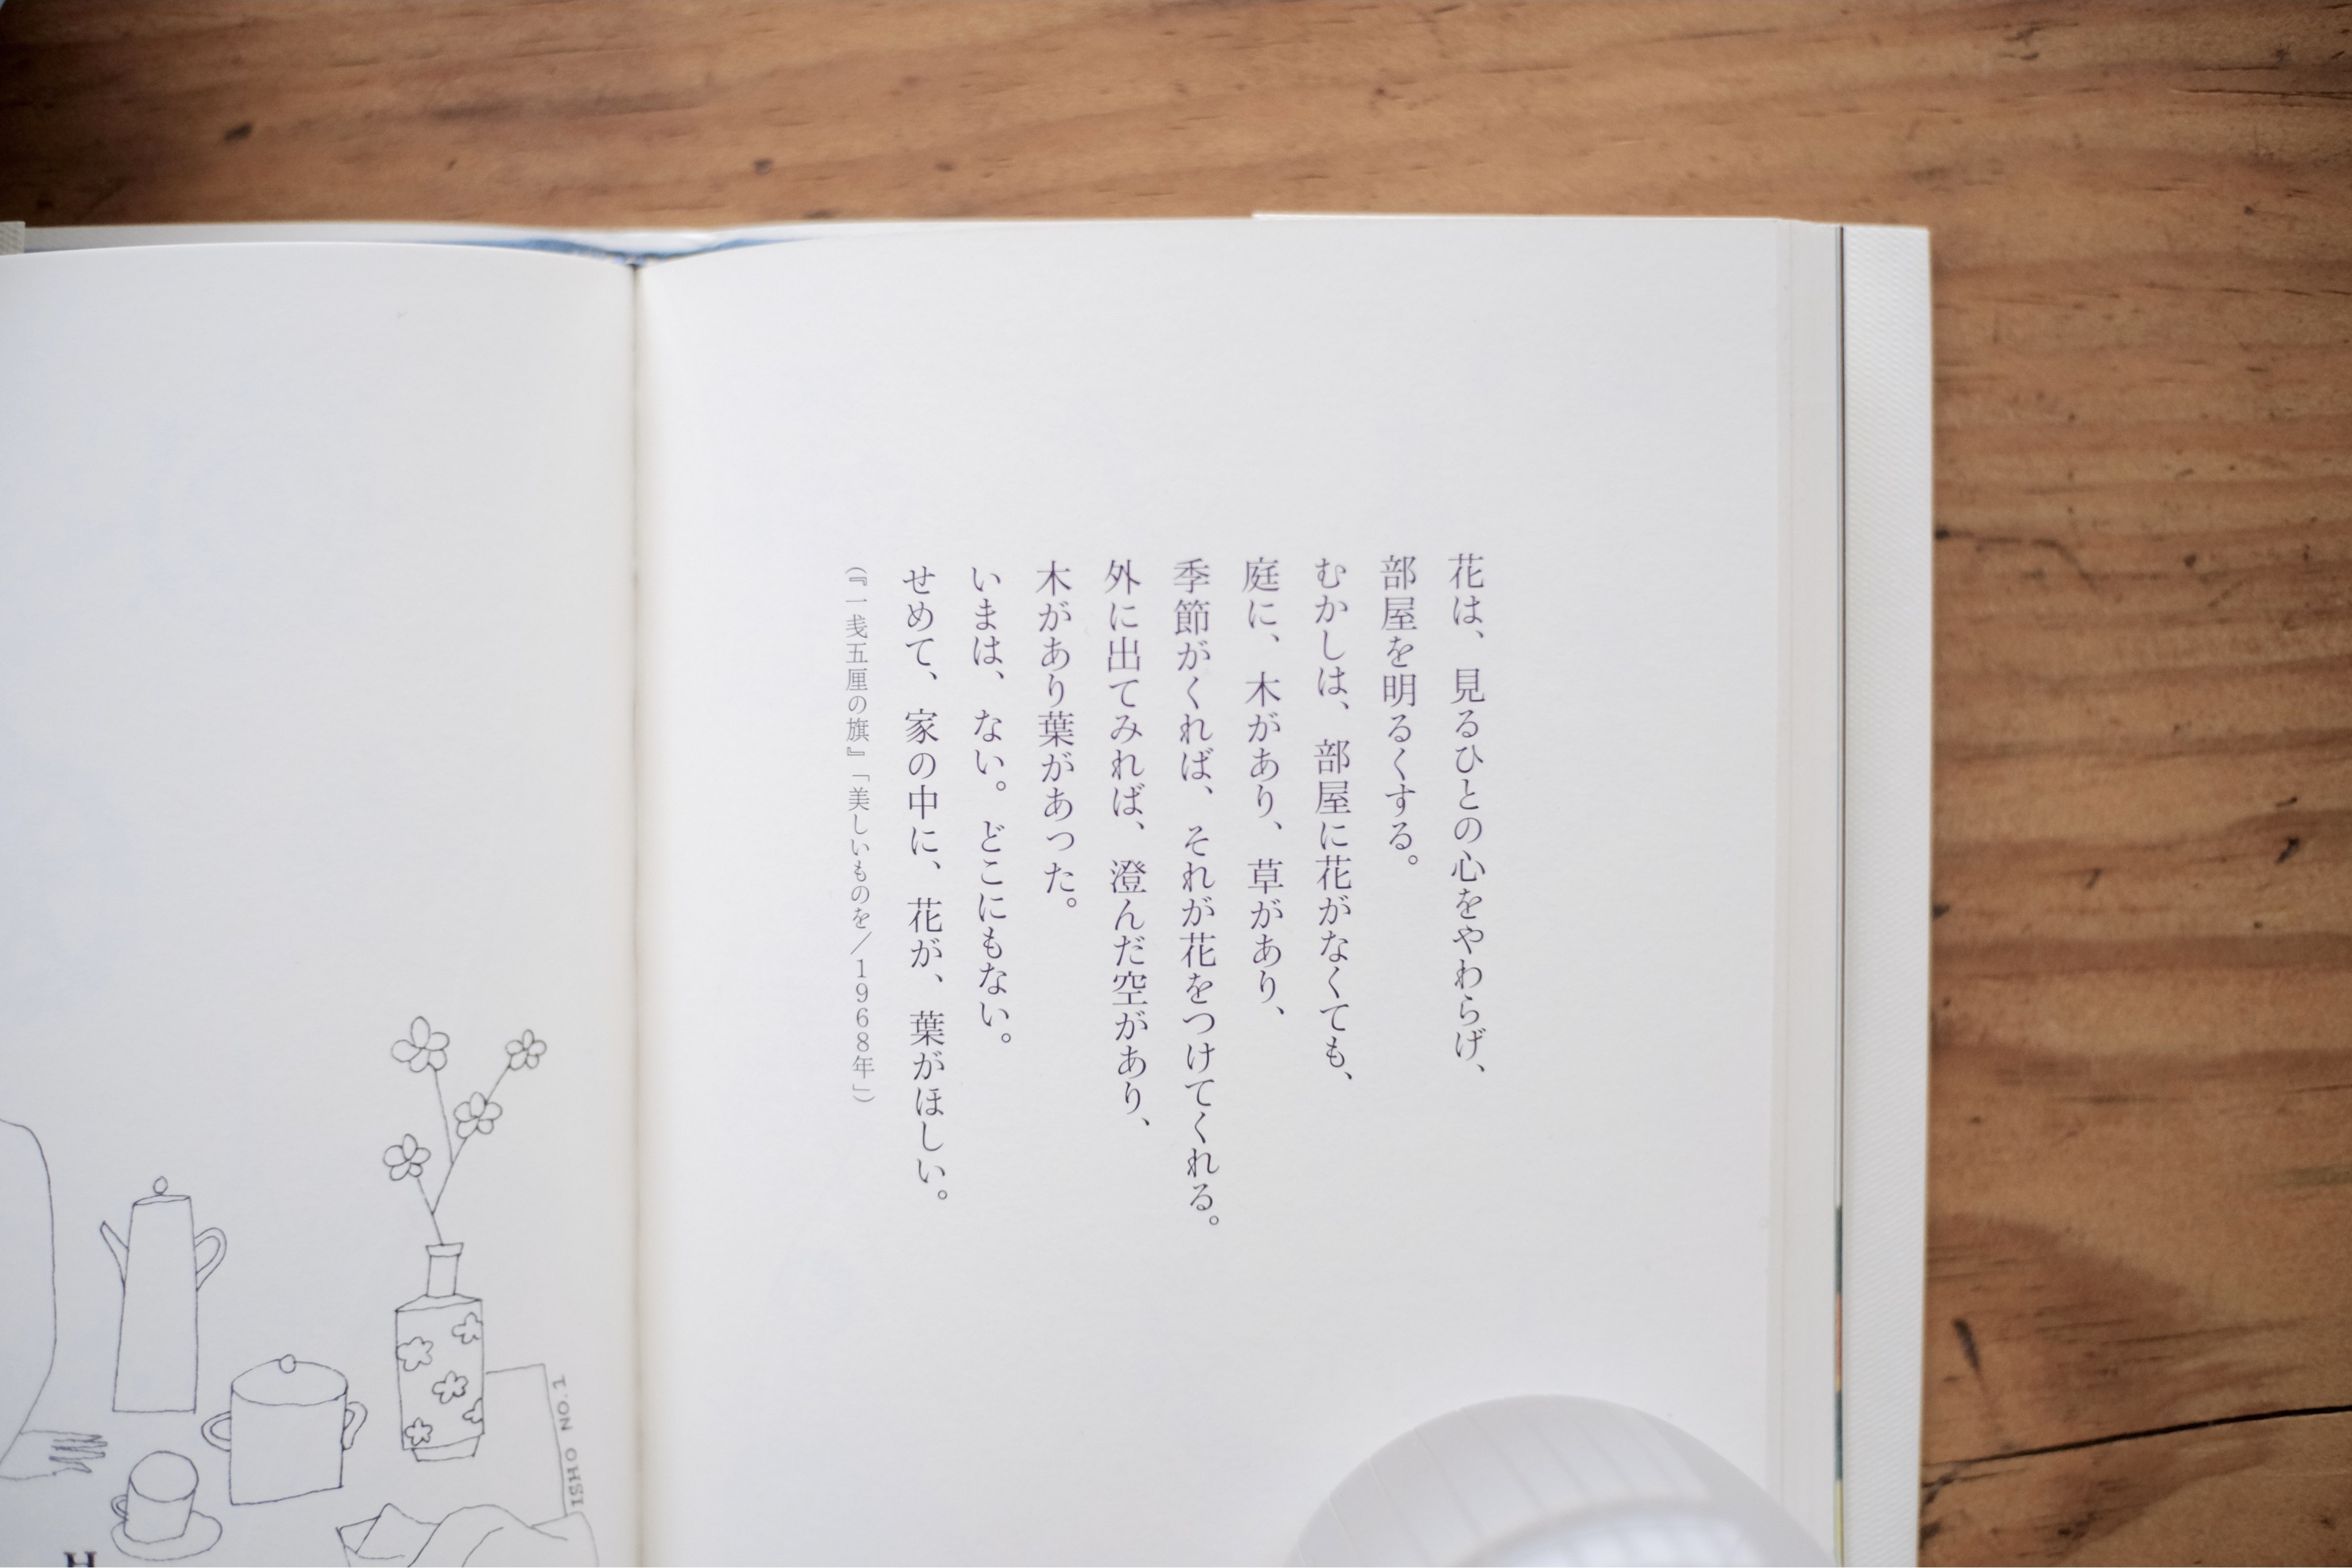 花は、見るひとの心をやわらげ、
部屋を明るくする。
むかしは、部屋に花がなくても、
庭に、木があり、草があり、
季節がくれば、それが花をつけてくれる。
外に出てみれば、澄んだ空があり、
木があり葉があった。
いまは、ない。どこにもない。
せめて、家の中に、花が、葉がほしい。
（『一戔五厘の旗』「美しいものを／1968年」）
ISHO NO.1
H